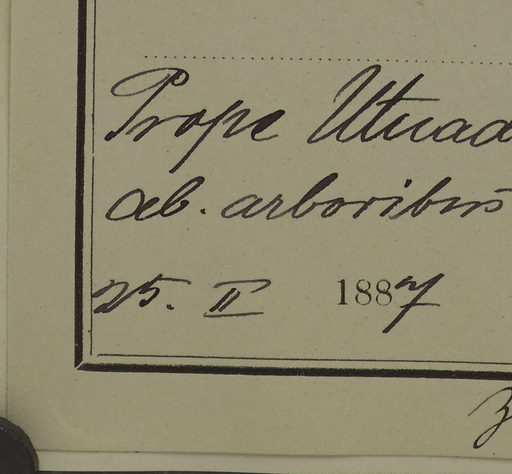 Prope Utuad
ab. arboribus
25. II 1887